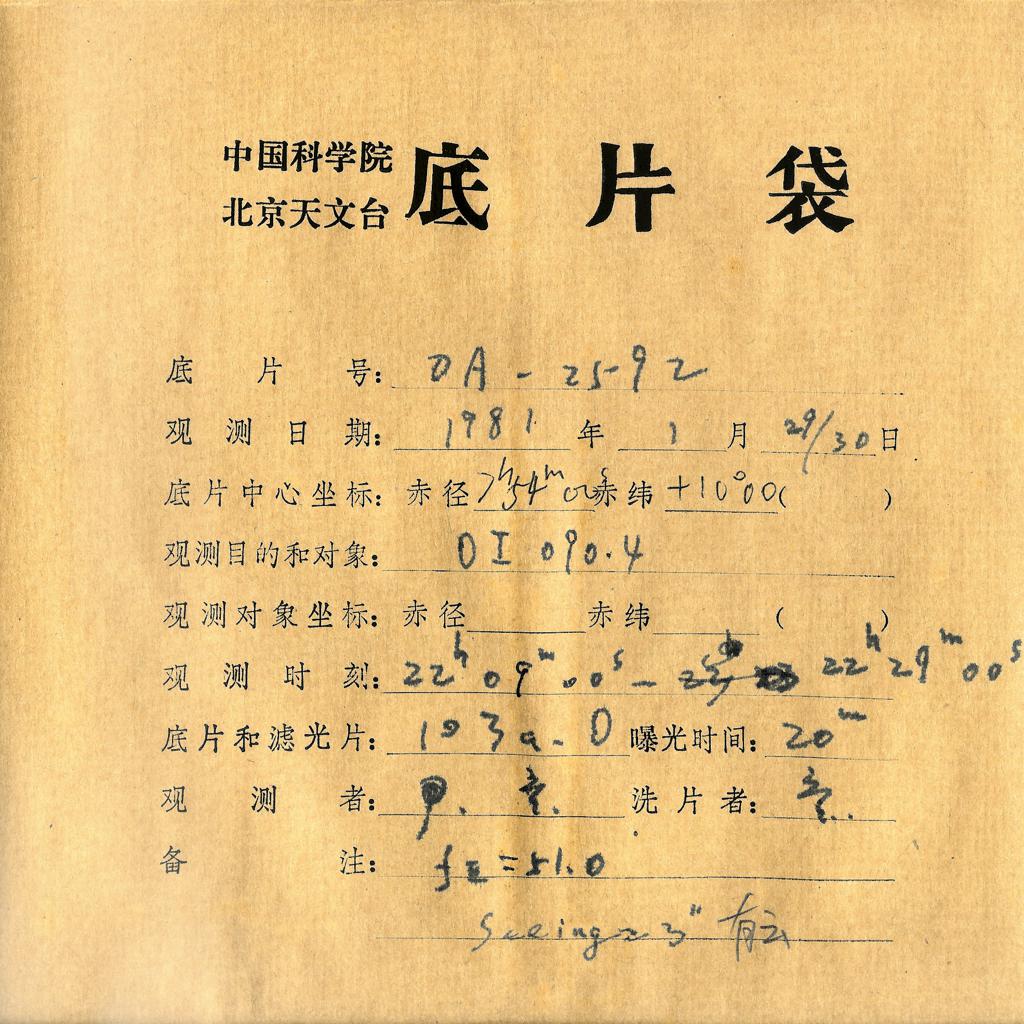 中国科学院
北京天文台
底片袋
底片号: DA-2592
观测日期: 1981年1月29/30日
底片中心坐标: 赤径 7h54m00s 赤纬 +10°00( )
观测目的和对象: OI 090.4
观测对象坐标: 赤径 赤纬 ( )
观测时刻: 22h09m00s - 22h29m00s
底片和滤光片: 103a-D 曝光时间: 20m
观测者: 洗片者:
备注: f = 51.0
Seeing ≈ 3" 有云